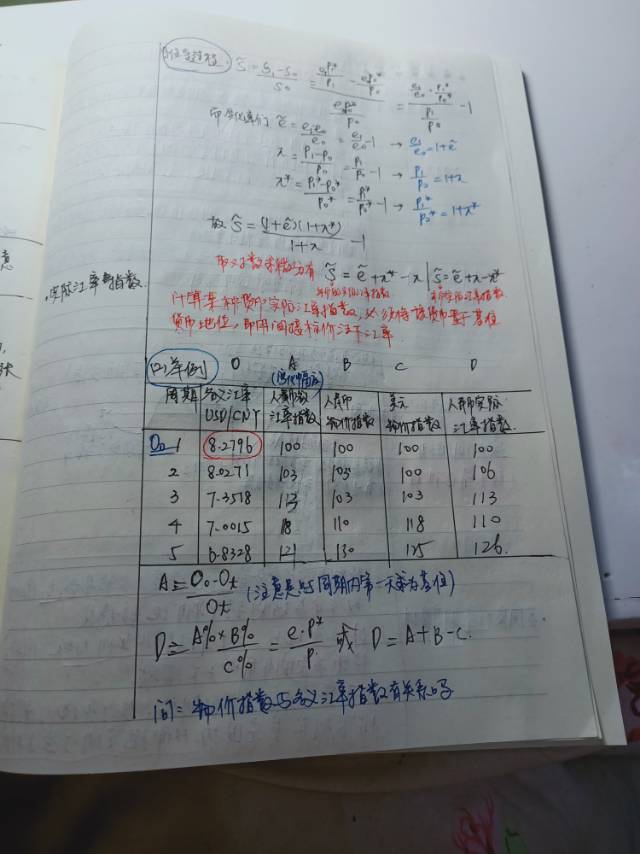 S̃ = (S₁-S₀)/S₀ = (e₁P₁*/P₁ - e₀P₀*/P₀)/(e₀P₀*/P₀) = (e₁/e₀ · P₁*/P₀*)/(P₁/P₀) - 1
ẽ = (e₁-e₀)/e₀ = e₁/e₀ - 1 → e₁/e₀ = 1+ẽ
π = (P₁-P₀)/P₀ = P₁/P₀ - 1 → P₁/P₀ = 1+π
π* = (P₁*-P₀*)/P₀* = P₁*/P₀* - 1 → P₁*/P₀* = 1+π*
故 S̃ = (1+ẽ)(1+π*)/(1+π) - 1
S̃ = ẽ+π*-π | S̃ = ẽ+π-π*
实际汇率指数
计算某种货币实际汇率指数,必须将该货币置于基位
货币地位,即用间接标价法下汇率.
(2)举例 O A B C D
周期 名义汇率 USD/CNY 人民币 汇率指数 人民币 物价指数 美元 物价指数 人民币实际 汇率指数.
O₀ 1 8.2796 100 100 100 100
2 8.0271 103 103 100 106
3 7.3518 113 103 103 113
4 7.0015 118 110 118 110
5 6.8328 121 130 125 126.
A = (O₀-Oₜ)/Oₜ (注意是以周期内第一天为基位)
D = A%×B%/C% = e·P*/P 或 D = A+B-C.
问:物价指数与名义汇率指数有关系吗